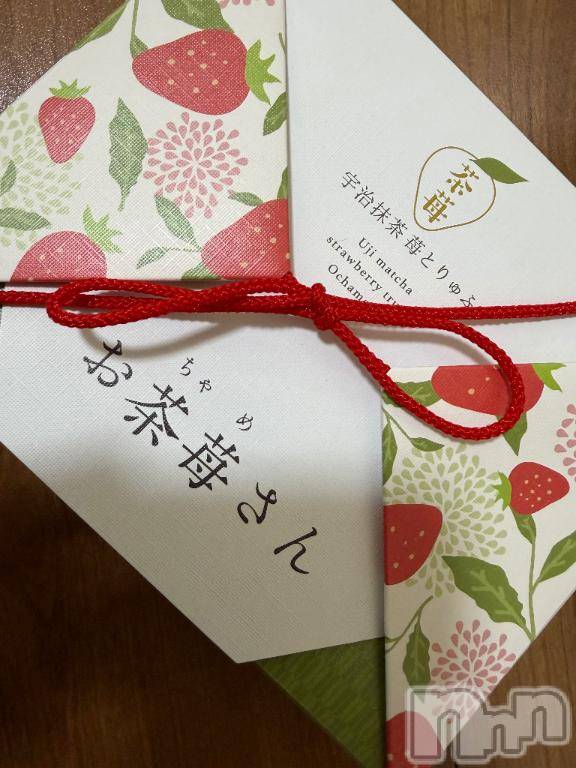 茶苺
宇治抹茶 苺とりゅふ
Uji matcha
strawberry
ちゃめ
お茶苺さん
nnn